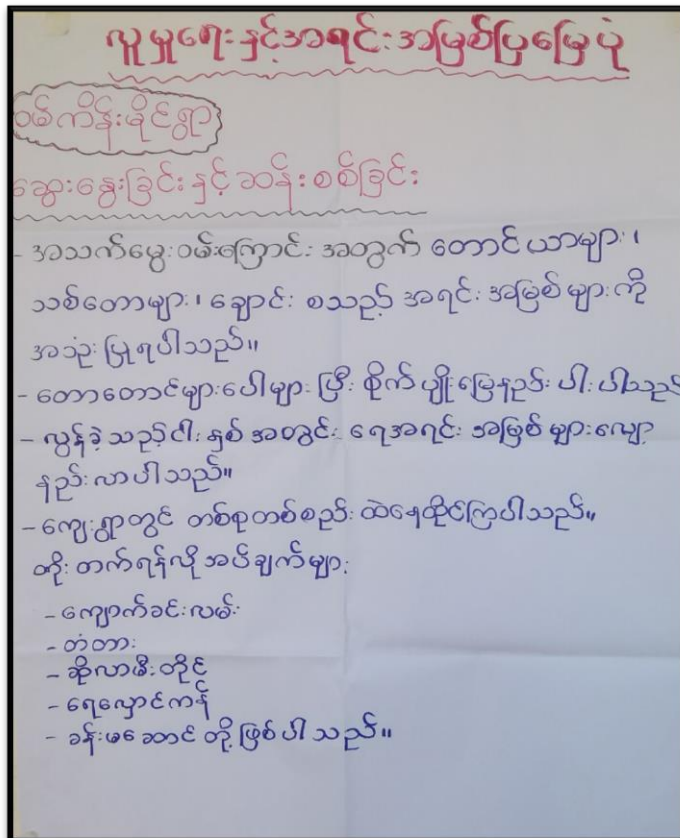 လူမှုရေးနှင့်အရင်းအမြစ်ပြမြေပုံ
ဝမ်ကိန်းမိုင်ရွာ
ဆွေးနွေးခြင်းနှင့် ဆန်းစစ်ခြင်း
- အသက်မွေးဝမ်းကြောင်း အတွက် တောင်ယာများ၊
သစ်တောများ၊ ချောင်း စသည့် အရင်းအမြစ်များကို
အသုံးပြုရပါသည်။
- တောတောင်များပေါများ ပြီး စိုက်ပျိုးမြေနည်းပါးပါသည်
- လွန်ခဲ့သည့်ငါးနှစ်အတွင်း ရေအရင်းအမြစ်များလျော့
နည်းလာပါသည်။
- ကျေးရွာတွင် တစ်စုတစ်စည်းထဲနေထိုင်ကြပါသည်။
တိုးတက်ရန်လိုအပ်ချက်များ
- ကျောက်ခင်းလမ်း
- တံတား
- ဆိုလာမီးတိုင်
- ရေလှောင်ကန်
- ခန်းမဆောင် တို့ဖြစ်ပါသည်။